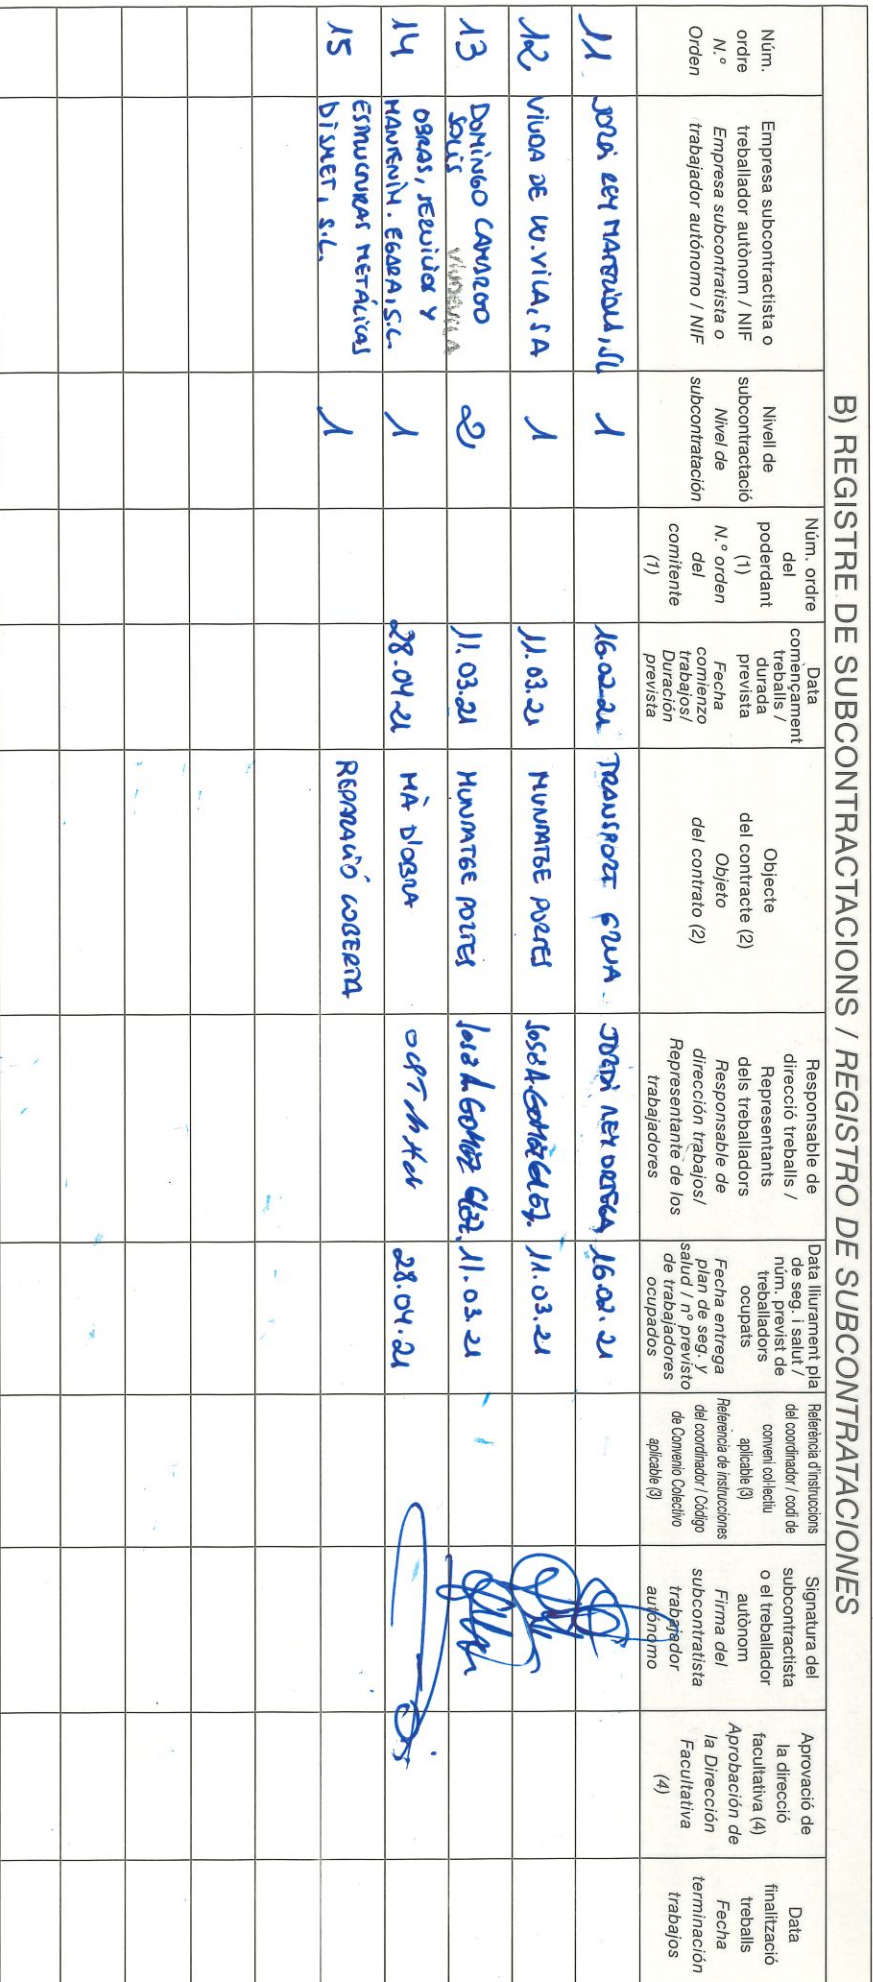 B) REGISTRE DE SUBCONTRACTACIONS / REGISTRO DE SUBCONTRATACIONES
Núm.
ordre
N.º
Orden
Empresa subcontractista o
treballador autònom / NIF
Empresa subcontratista o
trabajador autónomo / NIF
Nivell de
subcontractació
Nivel de
subcontratación
Núm. ordre
del
poderdant
(1)
N.º orden
del
comitente
(1)
Data
començament
treballs /
durada
prevista
Fecha
comienzo
trabajos/
Duración
prevista
Objecte
del contracte (2)
Objeto
del contrato (2)
Responsable de
direcció treballs /
Representants
dels treballadors
Responsable de
dirección trabajos/
Representante de los
trabajadores
Data lliurament pla
de seg. i salut /
núm. previst de
treballadors
ocupats
Fecha entrega
plan de seg. y
salud / nº previsto
de trabajadores
ocupados
Referència d'instruccions
del coordinador / codi de
conveni col·lectiu
aplicable (3)
Referencia de instrucciones
del coordinador / Código
de Convenio Colectivo
aplicable (3)
Signatura del
subcontractista
o el treballador
autònom
Firma del
subcontratista
trabajador
autónomo
Aprovació de
la direcció
facultativa (4)
Aprobación de
la Dirección
Facultativa
(4)
Data
finalització
treballs
Fecha
terminación
trabajos
11. JORDI REY MATERIALS, SL 1 16.02.21 TRANSPORT GRUA. JORDI REY ORTEGA 16.02.21
12 VIUDA DE VILA, SA 1 11.03.21 MUNTATGE PORTES JOSÉ A. GOMEZ GLEZ. 11.03.21
13 DOMINGO CAMARGO
SOLIS 2 11.03.21 MUNTATGE PORTES JOSÉ A. GOMEZ GLEZ. 11.03.21
14 OBRAS, SERVICIOS Y
MANTENIM. EGARA, S.L. 1 28.04.21 MÀ D'OBRA 28.04.21
15 ESTRUCTURAS METÁLICAS
DISMET, S.L. 1 REPARACIÓ COBERTA